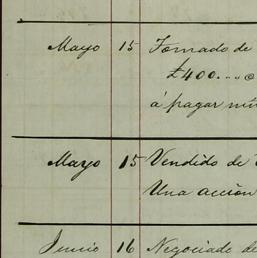 Mayo 15 Tomado de
£400.
á pagar
Mayo 15 Vendido de
Una acción
Junio 16 Negociado de